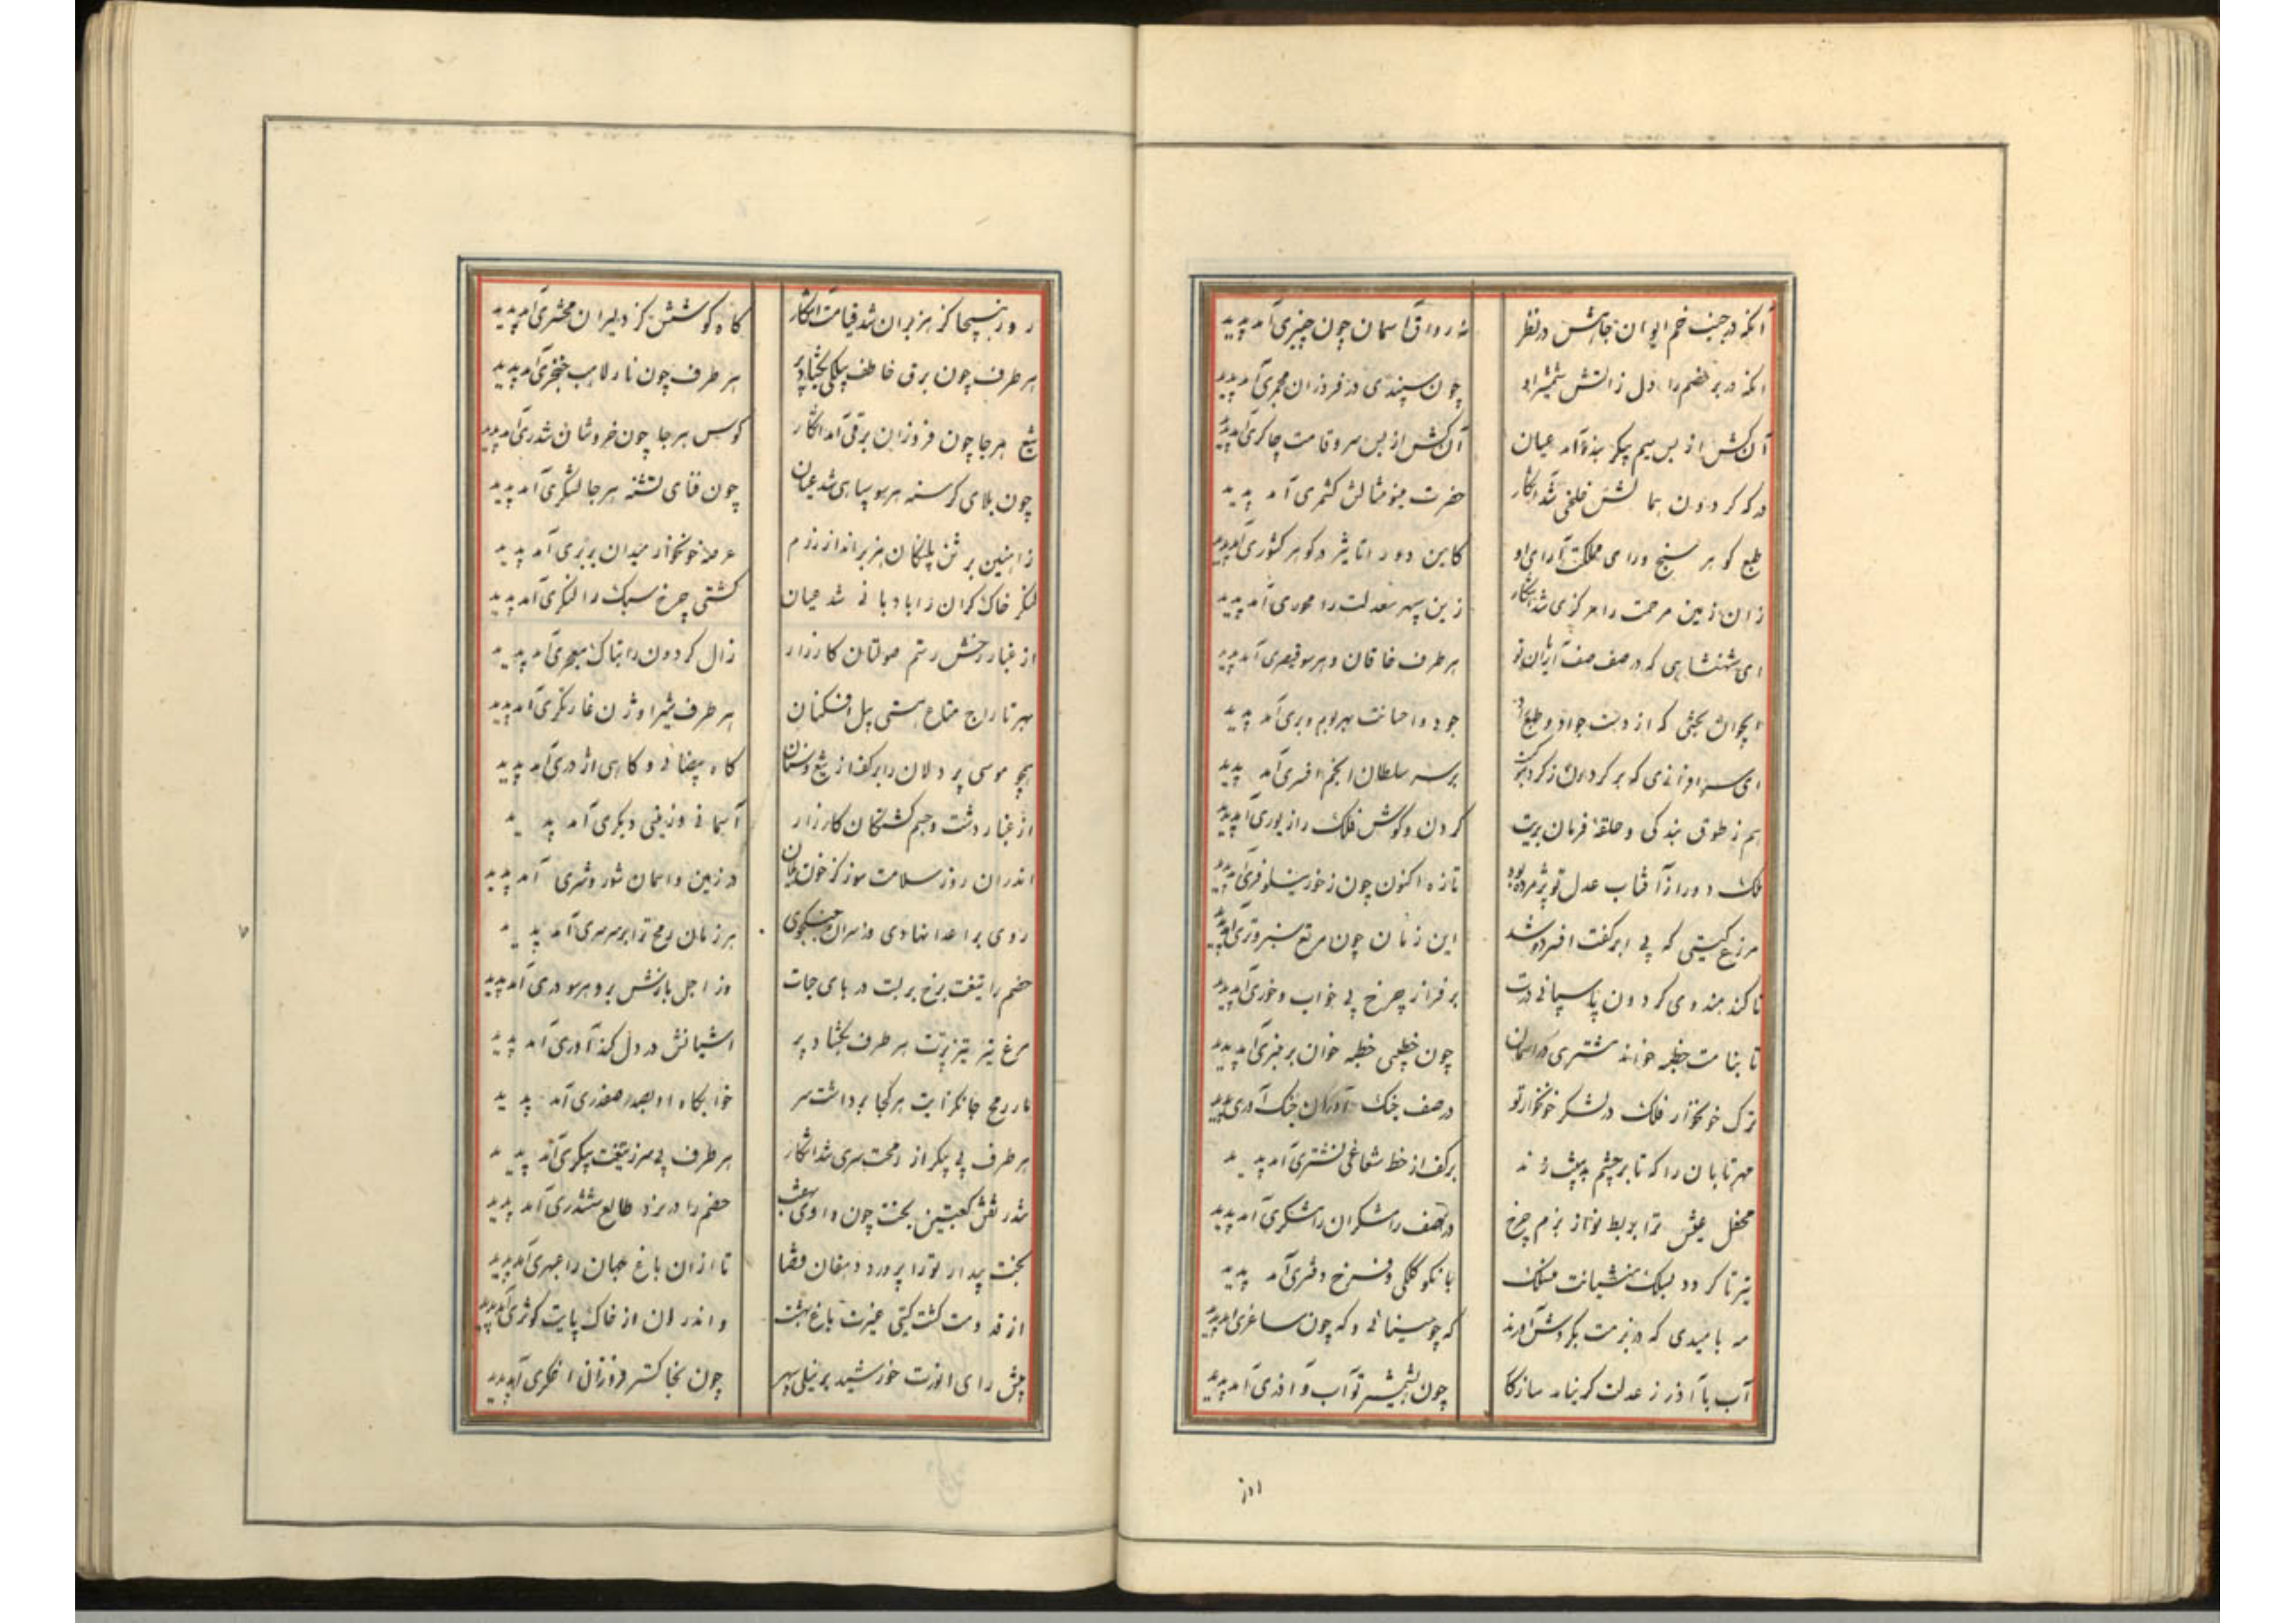 آنکه در جنب خم ایوان جاهش در نظر نه رواق آسمان چون چنبری آمد پدید
آنکه در بر خصم را دل زاتش شمشیر او چون سپندی در فروزان مجمری آمد پدید
آن کش از بس سیم پیکر بنده آمد عیان آن کش از بس سرو قامت چاکری آمد پدید
درکه کردون همالش خلخی شد آشکار حضرت مینو مثالش کشمری آمد پدید
طبع کوهر سنج و رای مملکت آرای او کاین دو را تاثیر در کوهر کشوری آمد پدید
زان زمین مرحمت را مرکزی شد آشکار زین سپهر معدلت را محوری آمد پدید
ای شهنشاهی که در صف صف آرایان تو هر طرف خاقان و هر سو قیصری آمد پدید
ای جوان بختی که از دست جواد و طبع راد جود و احسانت بهر بوم و بری آمد پدید
ای سرافرازی که بر کردون ز کرد بر سر سلطان انجم افسری آمد پدید
هم ز طوق بندکی و حلقه فرمان بریت کردن و کوش فلک را زیوری آمد پدید
ملک دور از آفتاب عدل تو پژمرده بود تازه اکنون چون ز خور نیلوفری آمد پدید
مزرع کیتی که بی ابر کفت افسرده شد این زمان چون مرتع سبز و تری آمد پدید
تا کند هندوی کردون پاسبانی درت بر فراز چرخ بی خواب و خوری آمد پدید
تا بنامت خطبه خواند مشتری در آسمان چون خطیبی خطبه خوان بر منبری آمد پدید
ترک خونخوار فلک در لشکر خونخوار تو در صف جنک آوران جنک آوری آمد پدید
مهر تابان را که تا بر چشم بدبینت زند بر کف از خط شعاعی نشتری آمد پدید
محفل عیش ترا بربط نواز بزم چرخ در صف رامشکران رامشکری آمد پدید
تیر تا کردد بسلک منشیانت منسلک با نکو کلکی و فرخ دفتری آمد پدید
مه بامیدی که در بزمت بکردش آورند که چو مینائی و که چون ساغری آمد پدید
آب با آذر ز عدلت کر بناید سازکار چون بشمشیر تو آب و آذری آمد پدید
روز هیجا کز هزبران شد قیامت آشکار کاه کوشش کز دلیران محشری آمد پدید
هر طرف چون برق خاطف پیلکی بکشاد پر هر طرف چون نار لاهب خنجری آمد پدید
تیغ هر جا چون فروزان برقی آمد آشکار کوس هر جا چون خروشان تندری آمد پدید
چون بلای کرسنه هر سو سپاهی شد عیان چون قضای تشنه هر جا لشکری آمد پدید
ز آهنین بر تن پلنکان هزبر انداز رزم عرصه خونخوار میدان بربری آمد پدید
لنکر خاک کران را بادبانی شد عیان کشتی چرخ سبک را لنکری آمد پدید
از غبار رخش رستم صولتان کارزار زال کردون را بتاک معجری آمد پدید
بهر تاراج متاع هستی پیل افکنان هر طرف شیر اوژن غارتکری آمد پدید
همچو موسی پر دلان را بر کف از تیغ و سنان کاه بیضائی و کاهی اژدری آمد پدید
از غبار دشت و جسم کشتکان کارزار آسمانی و زمینی دیکری آمد پدید
اندران روز سلامت سوز کز خون یلان در زمین و آسمان شور و شری آمد پدید
روی بر اعدا نهادی وز سران جنکجوی هر زمان رمح ترا بر سر سری آمد پدید
خصم را تیغت برخ بربست درهای حیات وز اجل بازش برو هر سو دری آمد پدید
مرغ تیز تیز پرت هر طرف بکشاد پر آشیانش در دل کندآوری آمد پدید
مار رمح جانکزایت هر کجا برداشت سر خوابکاه او بصدر صفدری آمد پدید
هر طرف بی پیکر از رمحت سری شد آشکار هر طرف بی سر ز تیغت پیکری آمد پدید
شد ز نقش کعبتین بخت چون داوی خصم را در نرد طالع ششدری آمد پدید
بخت بیدار تو را پرورد دهقان قضا تا ازان باغ جهان را عبهری آمد پدید
از قدومت کشت کیتی غیرت باغ بهشت و اندران از خاک پایت کوثری آمد پدید
پیش رای انورت خورشید بر نیلی سپهر چون بخاکستر فروزان اخکری آمد پدید